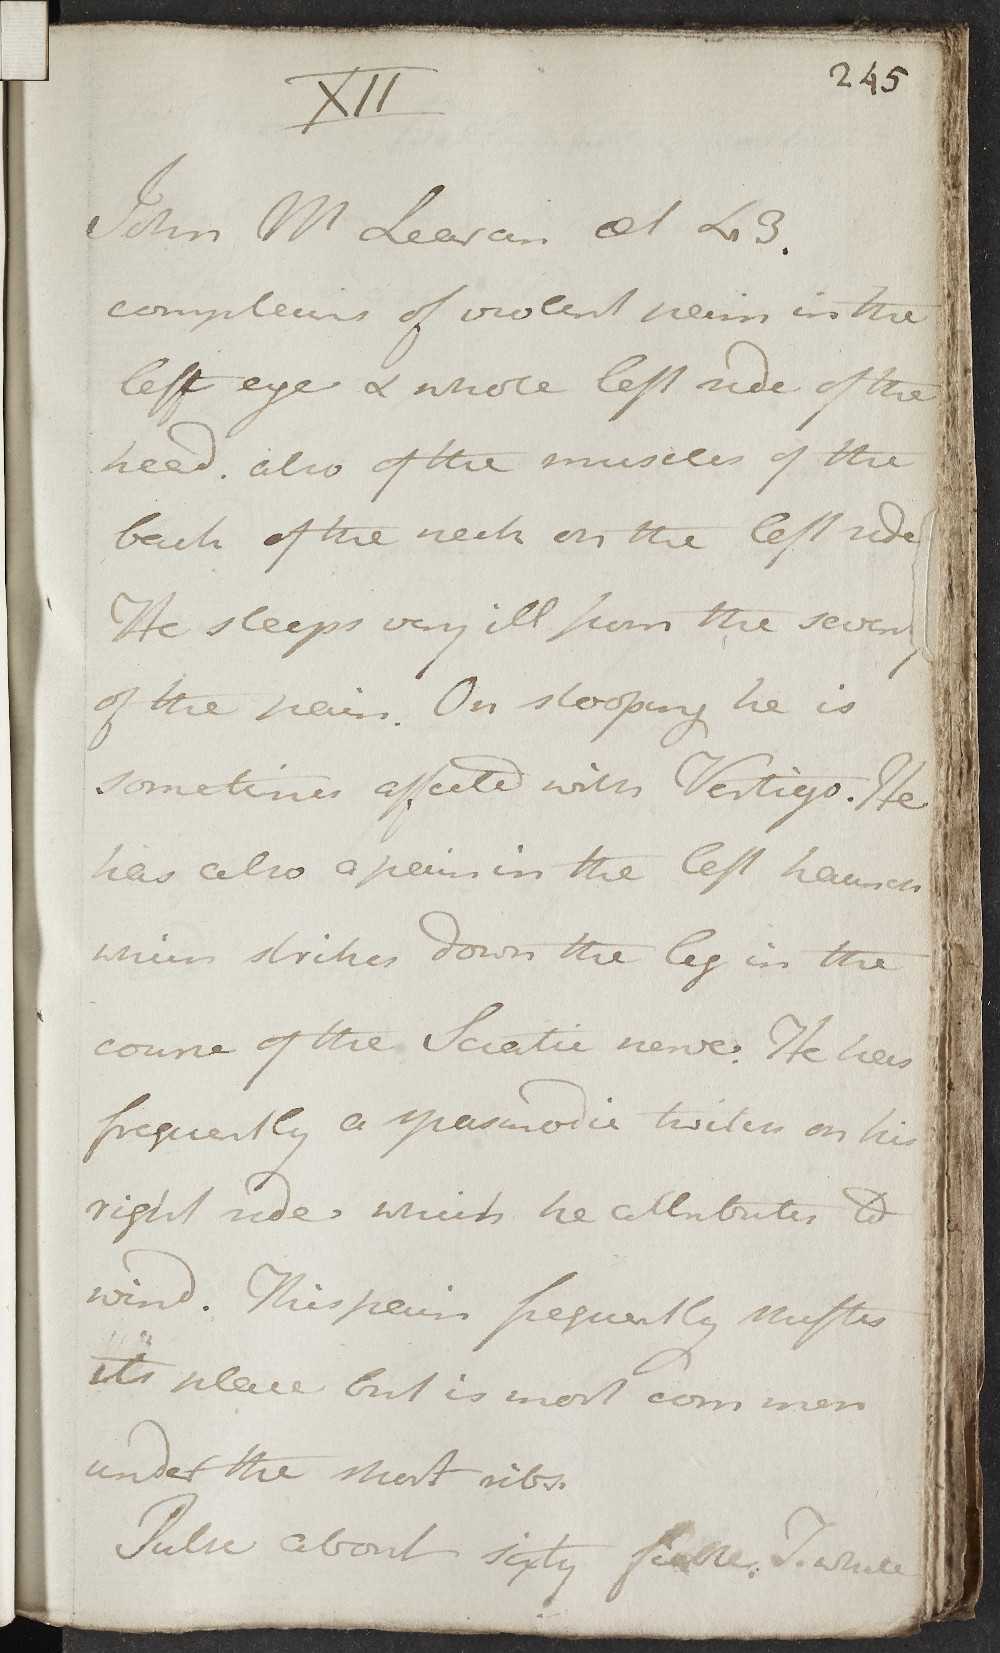 245
XII
John Mc Learan æt 43.
complains of violent pain in the
left eye & whole left side of the
head. also of the muscles of the
back of the neck on the left side
He sleeps very ill from the severity
of the pain. On stooping he is
sometimes affected with Vertigo. He
has also a pain in the left haunch
which strikes down the leg in the
course of the Sciatic nerve. He has
frequently a spasmodic twitch on his
right side which he attributes to
wind. This pain frequently shiftes
its place but is most common
under the short ribs.
Pulse about sixty feeble. T. white